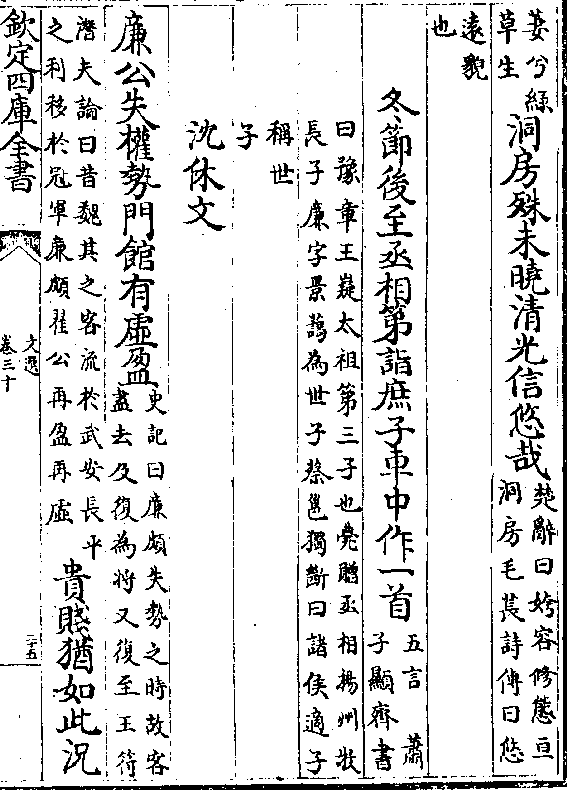 萋兮綠
草生
洞房殊未曉清光信悠哉
楚辭曰姱容修態亘
洞房毛萇詩傳曰悠
遠貌
也
冬節後至丞相第詣庶子車中作一首
五言 蕭
子顯齊書
曰豫章王嶷太祖第三子也薨贈丞相揚州牧
長子廉字景藹為世子蔡邕獨斷曰諸侯適子
稱世
子
沈休文
廉公失權勢門館有虛盈
史記曰廉頗失勢之時故客
盡去及復為將又復至王符
潛夫論曰昔魏其之客流於武安長平
之利移於冠軍廉頗翟公再盈再虛
貴賤猶如此況
欽定四庫全書
文選
卷三十
二五